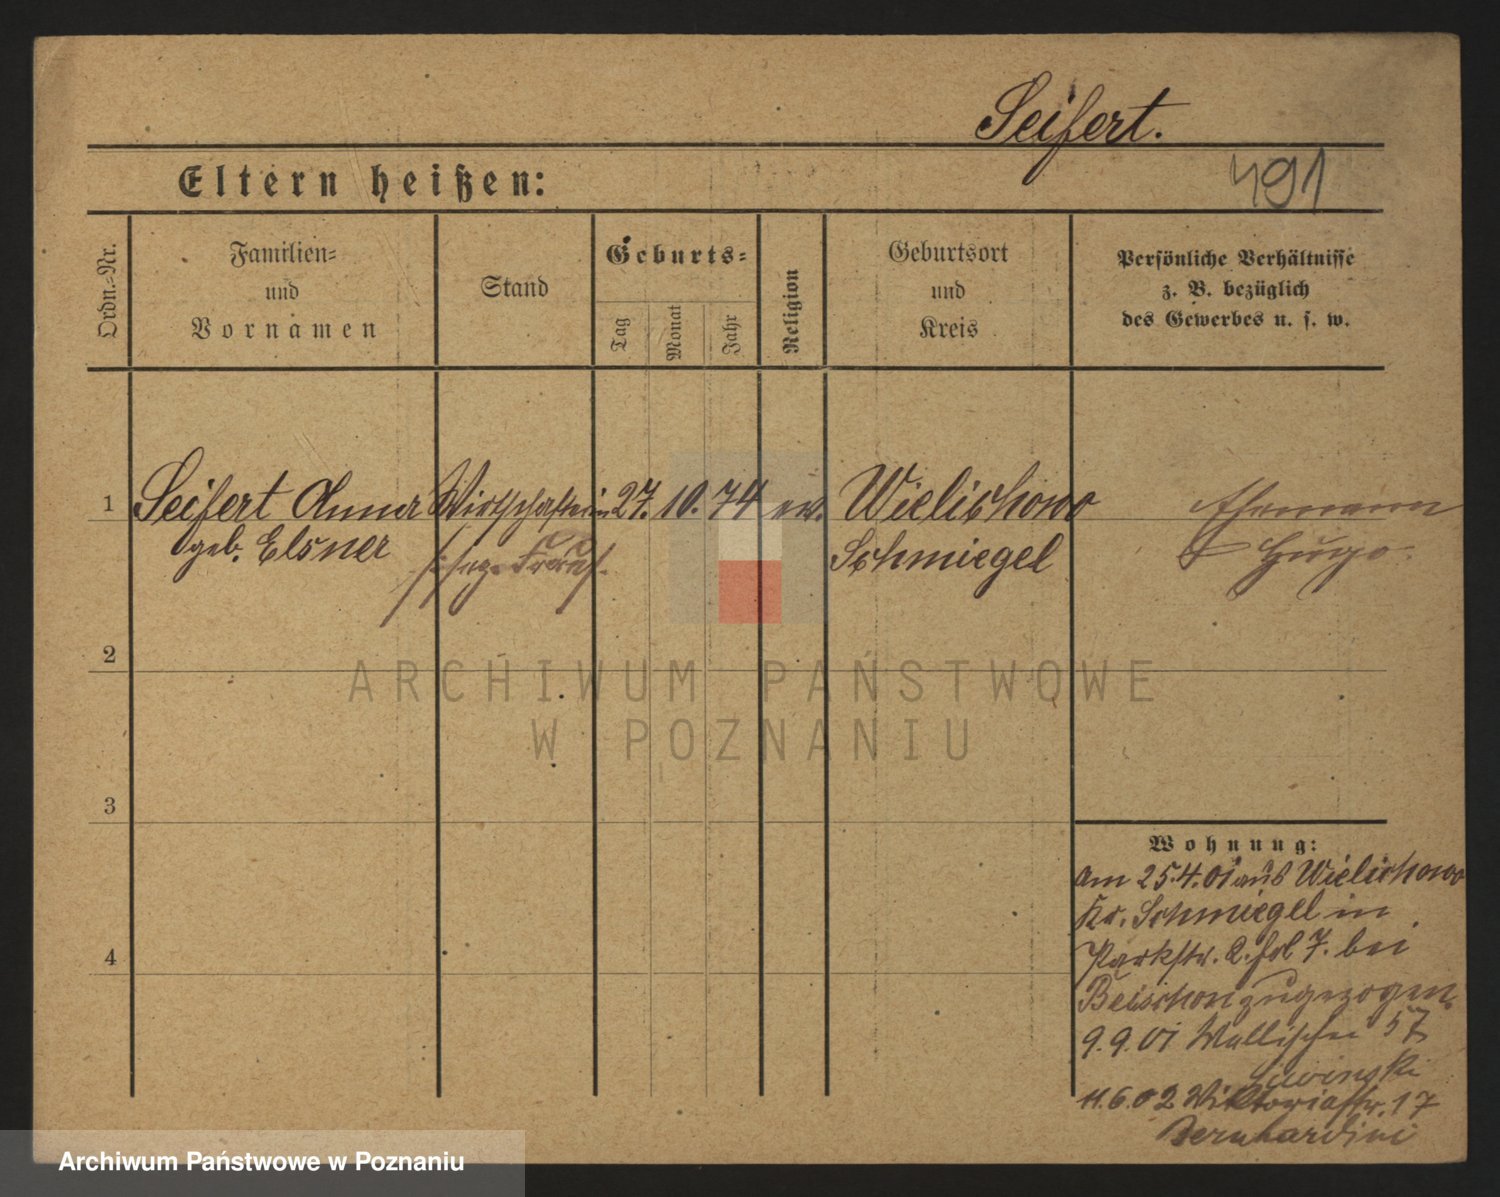 Seifert.
491
Eltern heißen:
Ordn.-Nr.
Familien-
und
Vornamen
Stand
Geburts-
Tag
Monat
Jahr
Religion
Geburtsort
und
Kreis
Persönliche Verhältnisse
z. B. bezüglich
des Gewerbes u. s. w.
1 Seifert Anna Wirtschafterin 27. 10. 74 ev. Wielichowo Ehemann
geb. Elsner Schmiegel Hugo.
2
3
4
Wohnung:
am 25.4.01 aus Wielichowo
Kr. Schmiegel in
Parkstr. 2. 7. bei
zugezogen.
9.9.01 Wallischei 57
11.6.02 Viktoriastr. 17
Bernhardini
ARCHIWUM PAŃSTWOWE
W POZNANIU
Archiwum Państwowe w Poznaniu